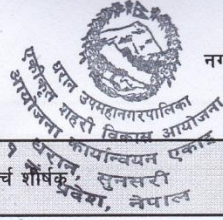 नग
धरान उपमहानगरपालिका
एकीकृत शहरी विकास आयोजना
आयोजना कार्यान्वयन एकाई
धरान, सुनसरी
१ नं. प्रदेश, नेपाल
र्च शीर्षक